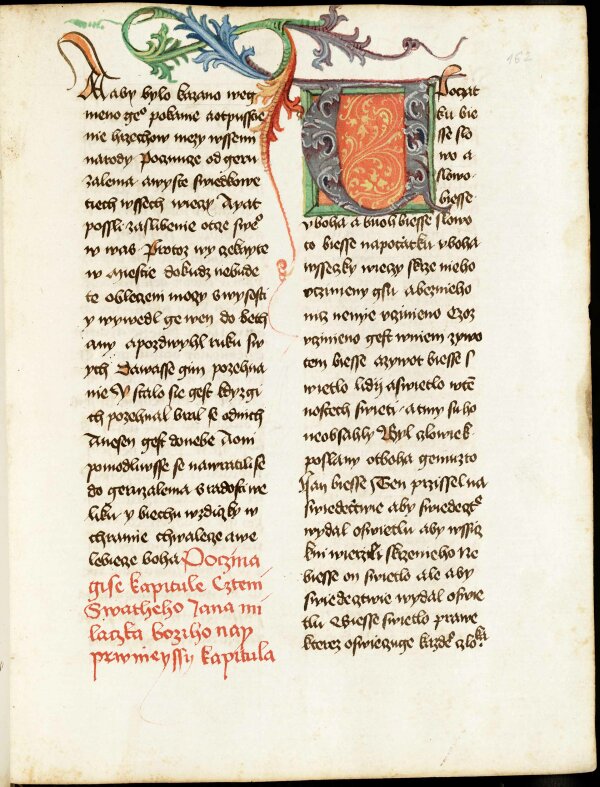 A aby bylo kazano weg
meno geᵒ pokanie aotpusstie
nie hrzechow mezy wssemi
narody Poczuuze od geru
zalema awyste swiedkowe
tiech wssech wieczy Ayat
possli zaslibenie otcze sweᵒ
w was Protoz wy czekayte
w miestie dokudz nebude
te obleczeni moczy s wysosti
y wywedl ge wen do beth
any apozdwyhl ruku sw
ych Dawasse gim pozehna
nie Y stalo sie gest kdyz gi
ch pozehnal bral se odnich
Anesen gest donebe A oni
pomodliwsse se nawratili se
do geruzalema s radosti we
liku y biechu wzdiczky w
chramie chwalecze awe
lebiecze boha Poczina
gi se kapitule Cztenie
Swatheho Jana mi
laczka bozieho nay
prwnieyssy kapitula
162
Na Poczat
ku bie
sse slo
wo a
slowo
biesse
v boha a buoh biesse slowo
to biesse napocatku v boha
wsseczky wieczy skrze nieho
vczinieny gsu a bez nieho
nicz nenye vczinieno Czoz
vczinieno gest w niem zywo
tem biesse azywot biesse s
wietlo lidij aswietlo w te̅
nostech swieti a tmy su ho
neobsahly Byl czlowiek
poslany ot boha gemuzto
Jan biesse Ten przissel na
swiedecztwie aby swiedeczᵒ
wydal oswietlu aby wssic
kni wierzili skrze nieho Ne
biesse on swietlo ale aby
swiedecztwie wydal oswie
tlu Biesse swietlo prawe
kterez oswieczuge kazdeᵒ czloᵏᵃ